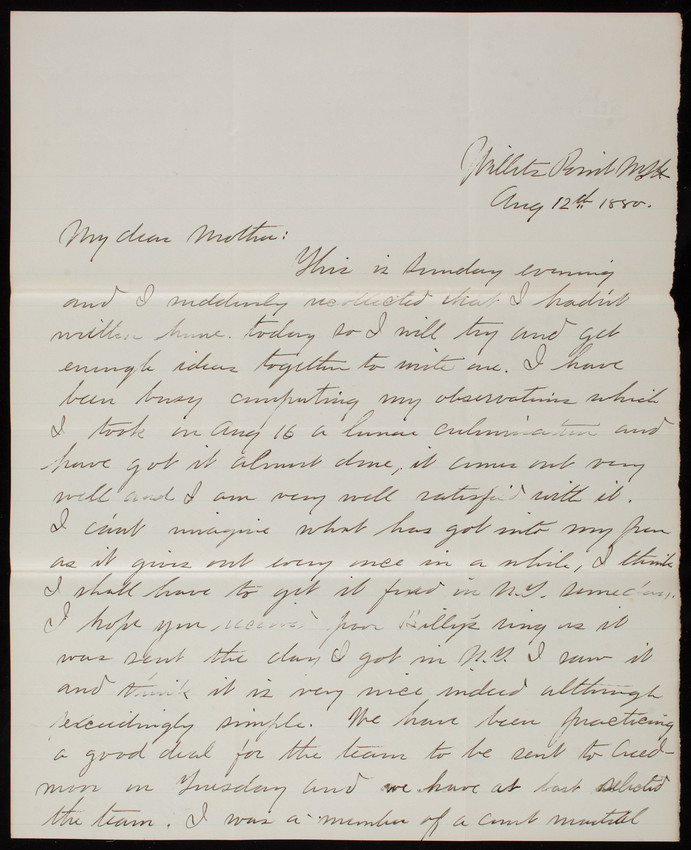 Willets Point N.Y.H
Aug 12th 1880.
My dear Mother:
This is Sunday evening
and I suddenly recollected that I hadn't
written home today so I will try and get
enough ideas together to write one. I have
been busy computing my observations which
I took on Aug 16 a lunar culmination and
have got it almost done, it comes out very
well and I am very well satisfied with it.
I can't imagine what has got into my pen
as it gives out every once in a while, I think
I shall have to get it fixed in N.Y. some day.
I hope you received poor Billy's ring as it
was sent the day I got in N.Y. I saw it
and think it is very nice indeed although
exceedingly simple. We have been practicing
a good deal for the team to be sent to Creed-
moor on Tuesday and we have at last selected
the team. I was a member of a court martial